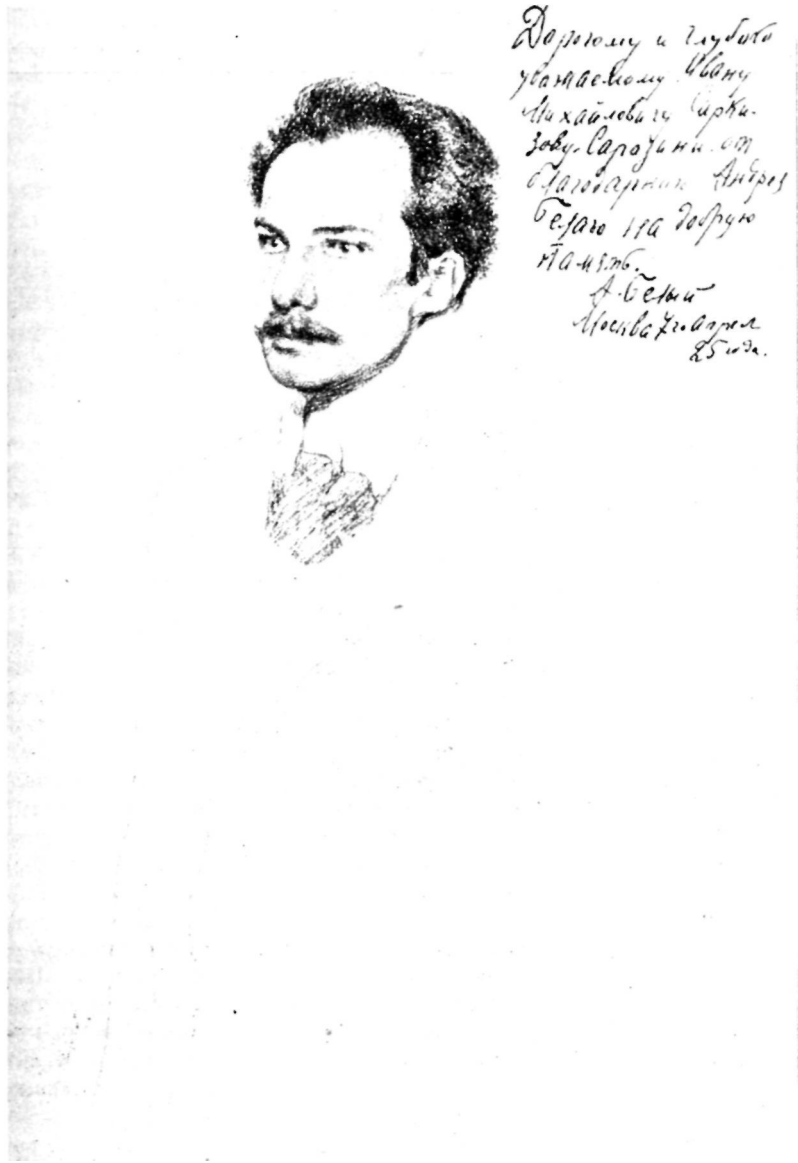 Дорогому и глубоко
уважаемому Ивану
Михайловичу Сарки-
зову-Серазини от
благодарного Андрея
Белаго на добрую
память.
А. Белый
Москва 7го апрел
25 года.